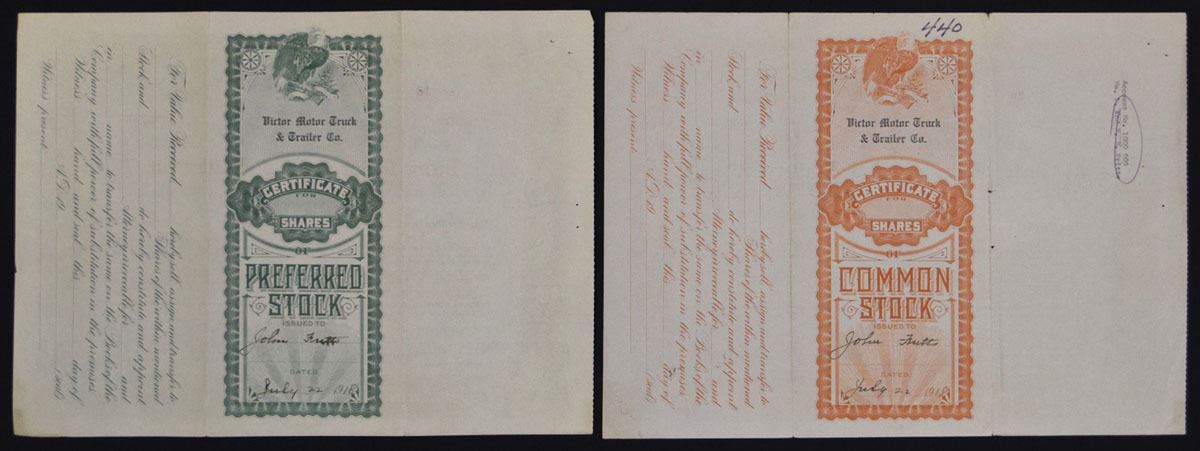 For Value Received hereby sell, assign and transfer to
Shares of the within mentioned
Stock and do hereby constitute and appoint
Attorney irrevocably for and
in name to transfer the same on the Books of the
Company with full power of substitution in the premises.
Witness hand and seal this day of
A.D. 19
Witness present
(seal)
Victor Motor Truck
& Trailer Co.
CERTIFICATE
FOR
SHARES
OF
PREFERRED
STOCK
ISSUED TO
John
DATED
July 22 1918
For Value Received hereby sell, assign and transfer to
Shares of the within mentioned
Stock and do hereby constitute and appoint
Attorney irrevocably for and
in name to transfer the same on the Books of the
Company with full power of substitution in the premises.
Witness hand and seal this day of
A.D. 19
Witness present
(seal)
440
Victor Motor Truck
& Trailer Co.
CERTIFICATE
FOR
SHARES
OF
COMMON
STOCK
ISSUED TO
John
DATED
July 22 1918